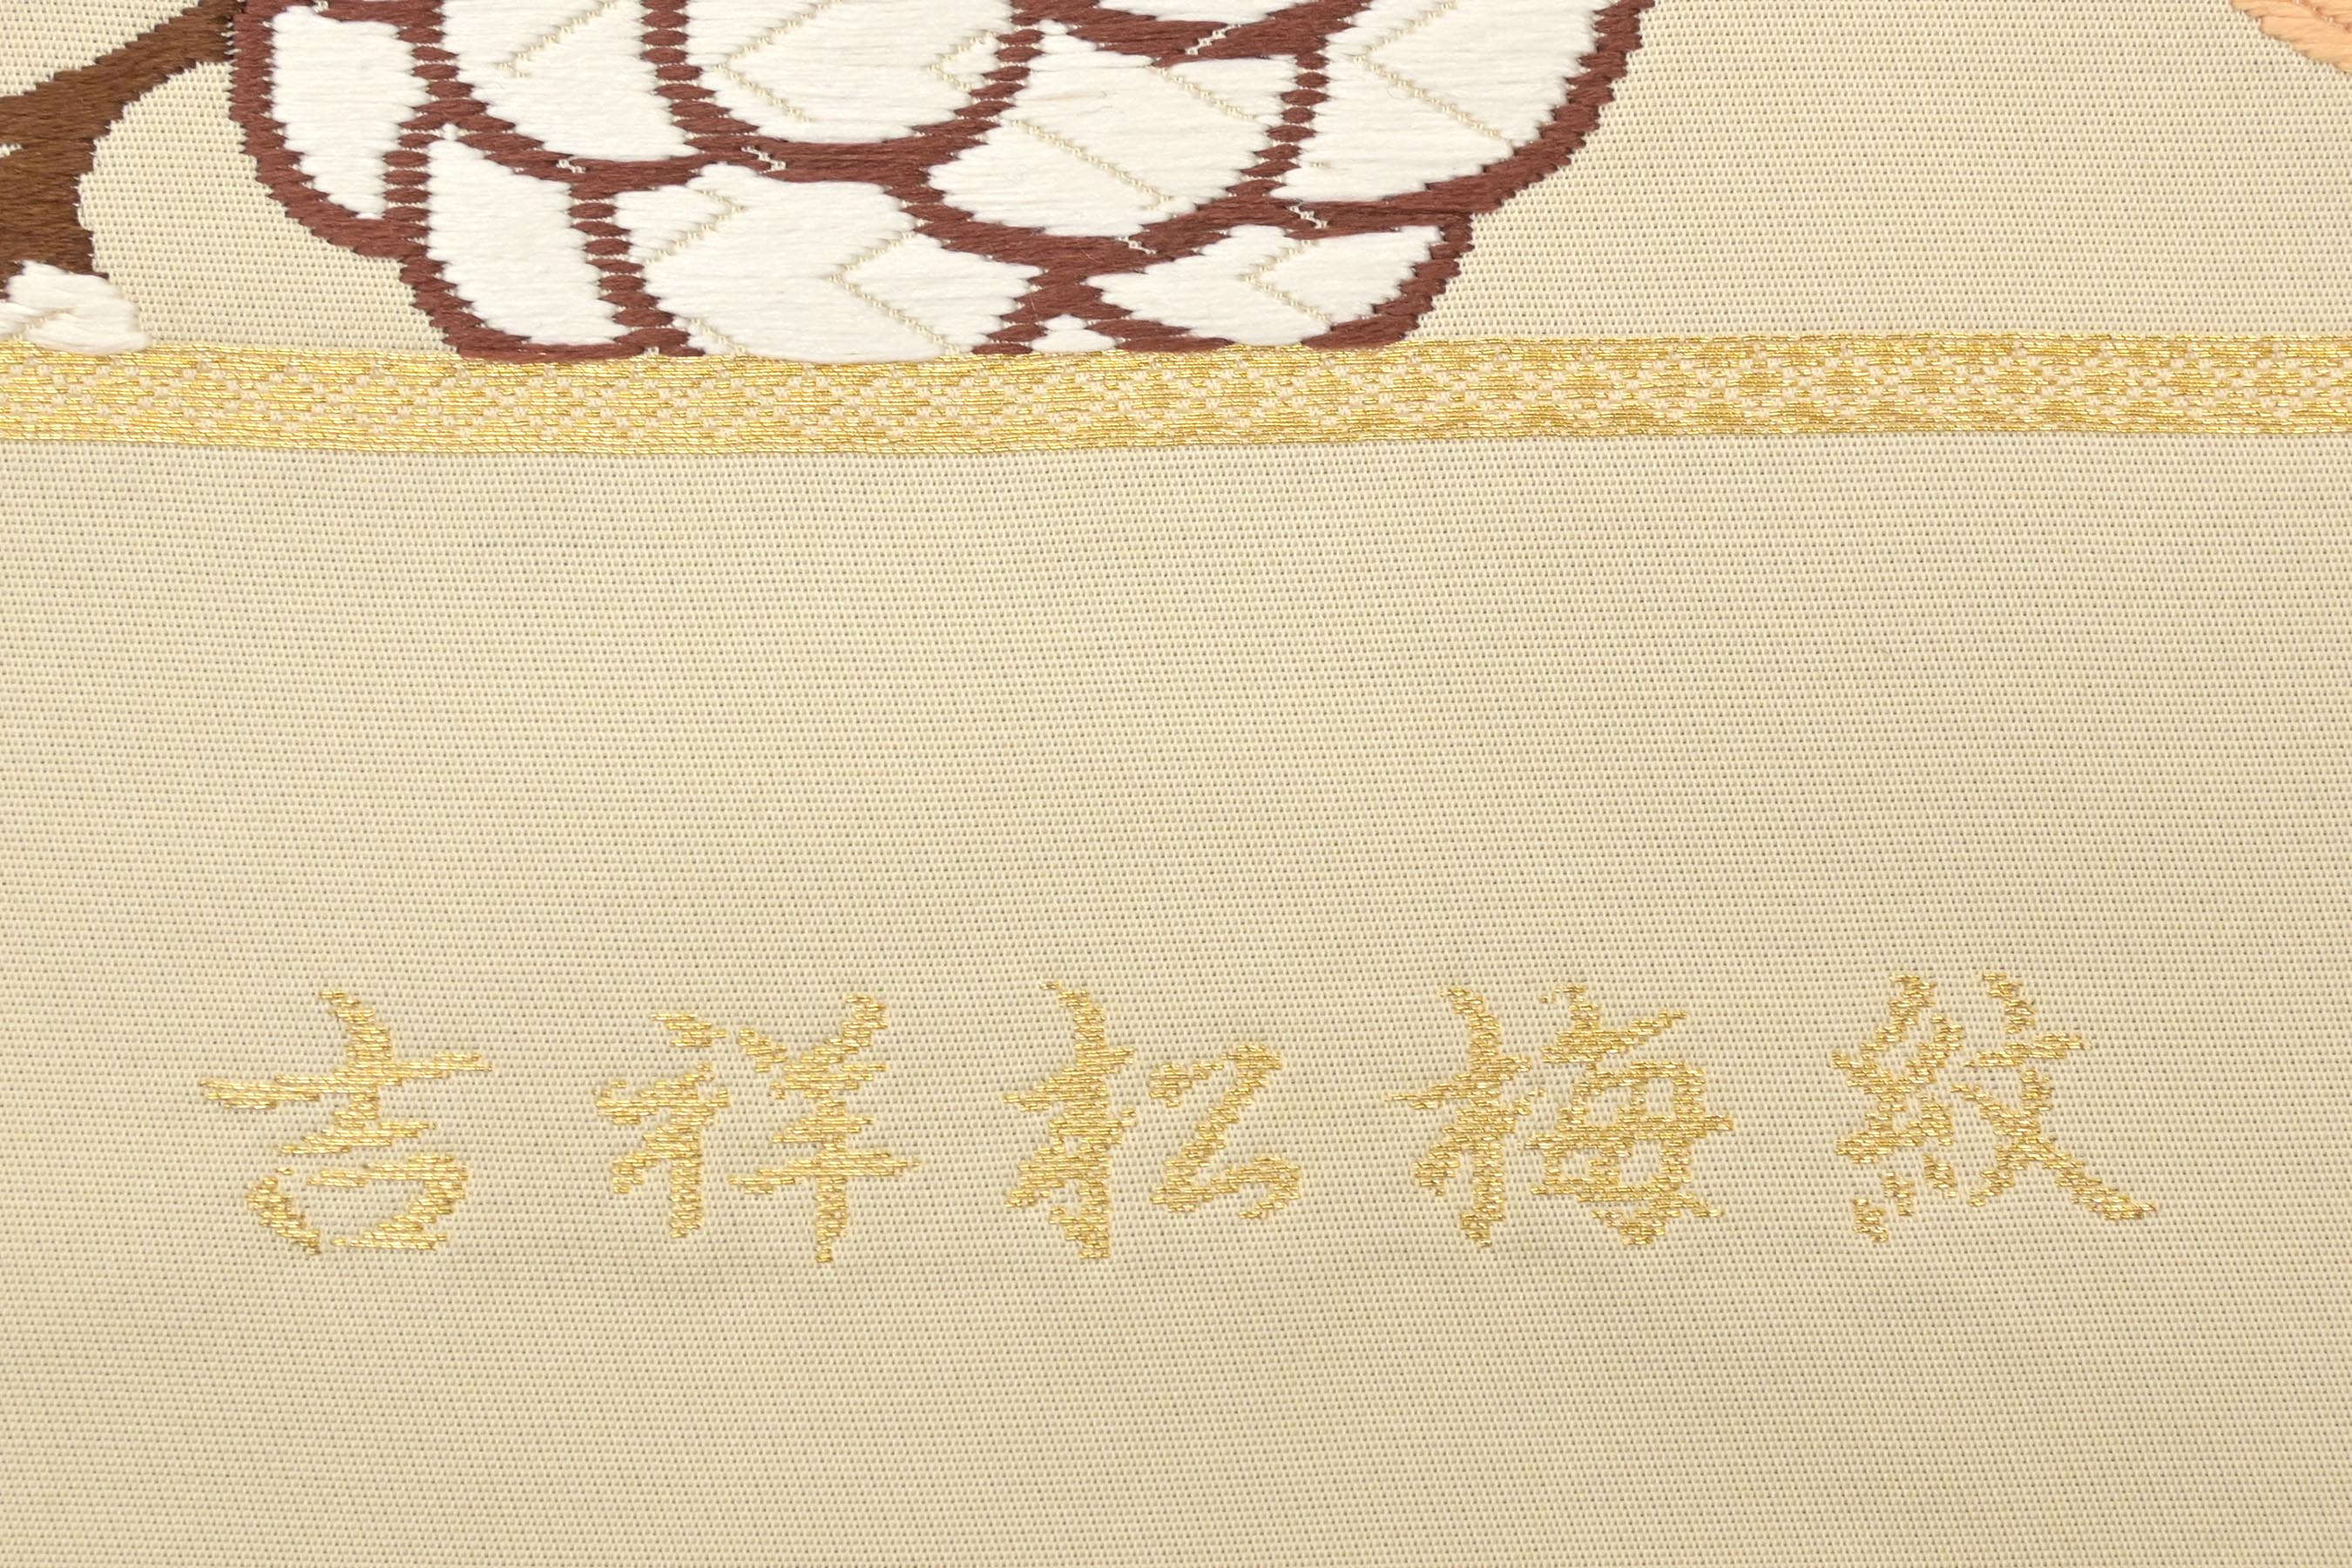 吉祥松梅紋